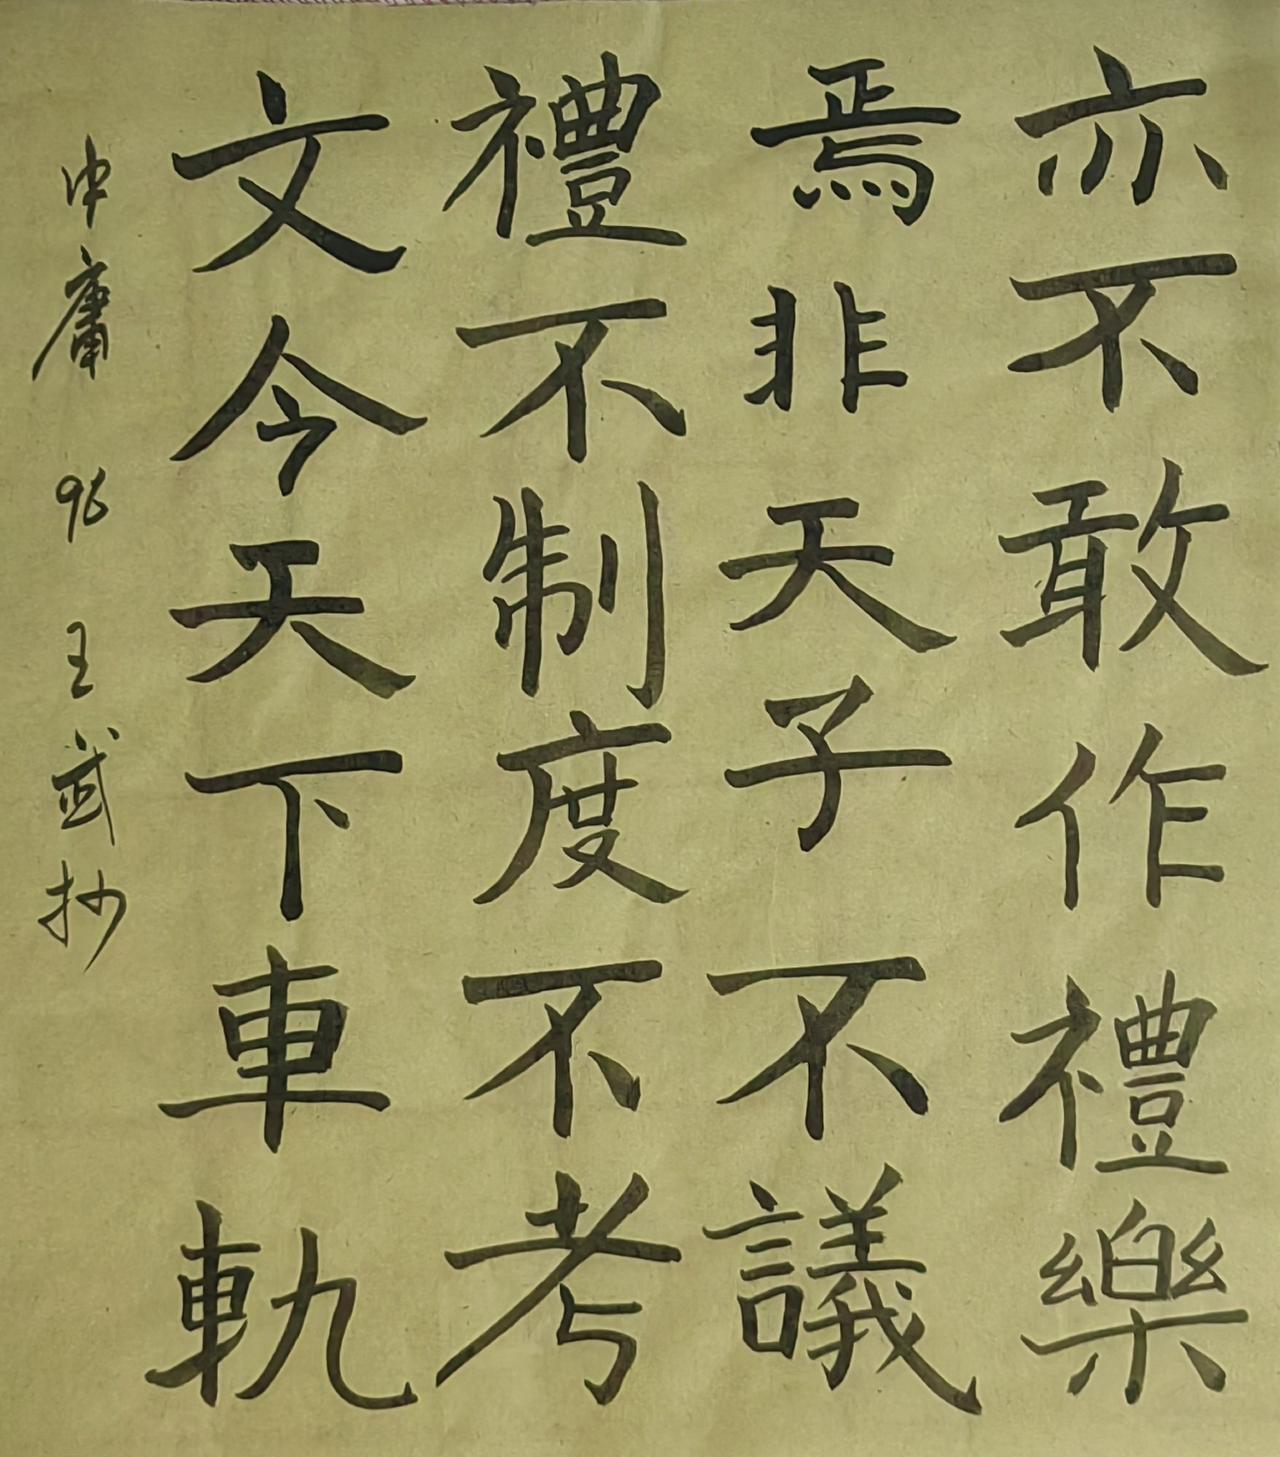 亦不敢作禮樂
焉非天子不議
禮不制度不考
文今天下車軌
中庸 96 王武抄